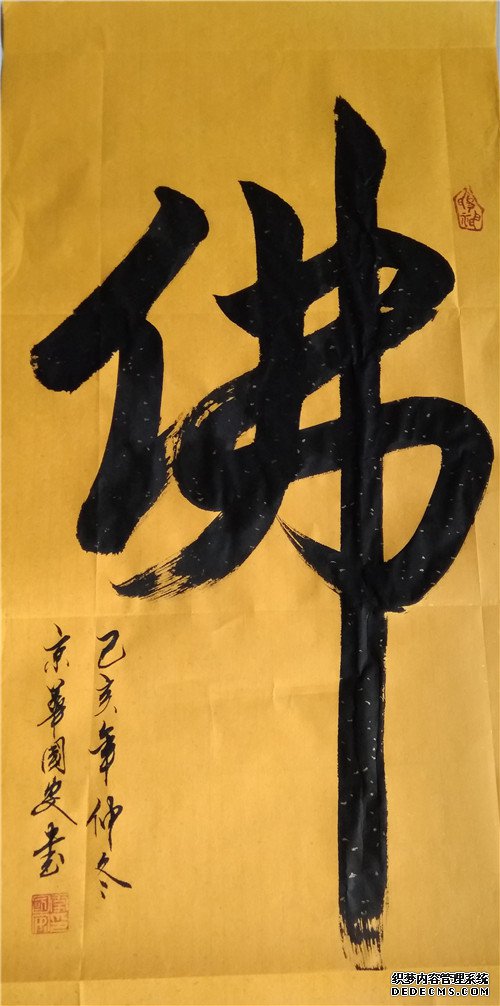 佛
己亥年仲冬
京华国安书
织梦内容管理系统
DEDECMS.COM